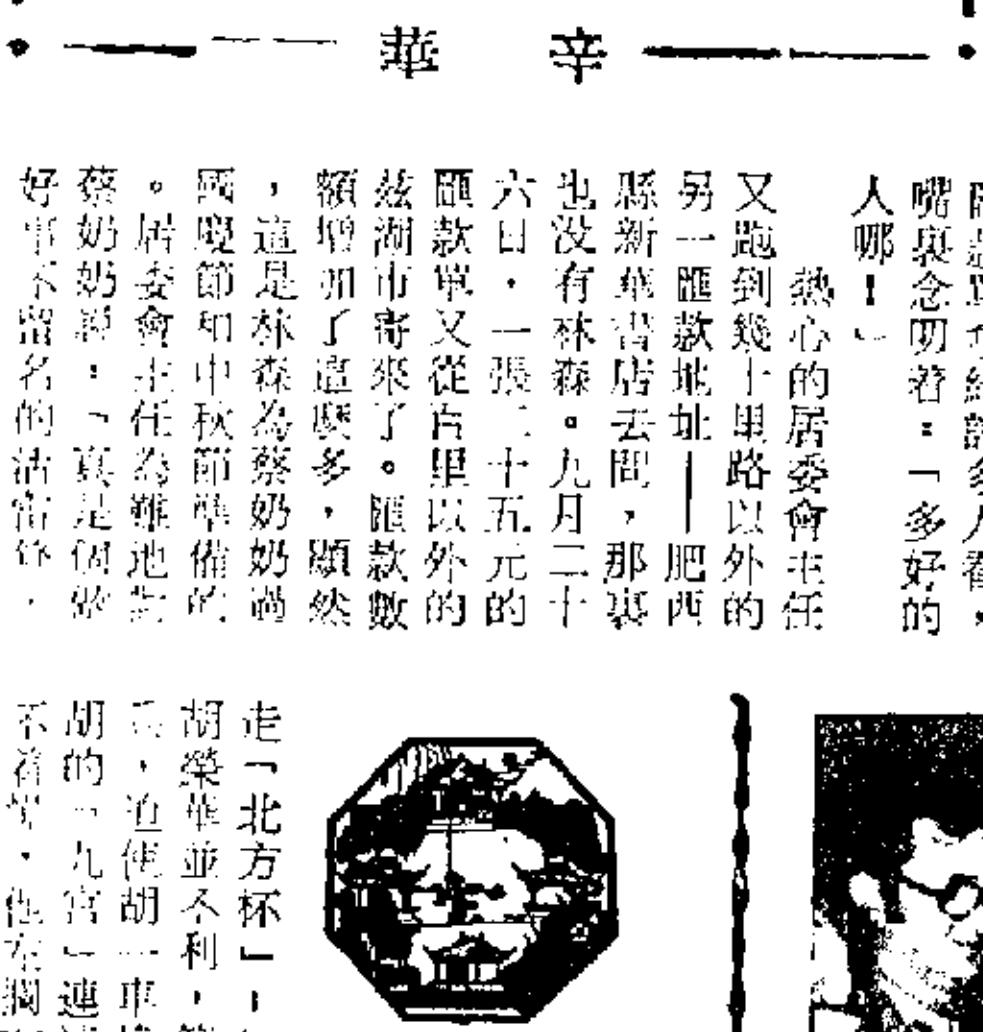 辛華
嘴裏念叨着：「多好的
人哪！」
熱心的居委會主任
又跑到幾十里路以外的
另一匯款地址——肥西
縣新華書店去問，那裏
也没有林森。九月二十
六日，一張二十五元的
匯款單又從百里以外的
茲湖市寄來了。匯款數
額增加了這麼多，顯然
，這是林森為蔡奶奶過
國慶節和中秋節準備的
。居委會主任為難地對
蔡奶奶説：「真是個做
好事不留名的活雷鋒，
走「北方杯」
胡榮華並不利，
，迫使胡一車
胡的「九宮」連
不着慌，他在